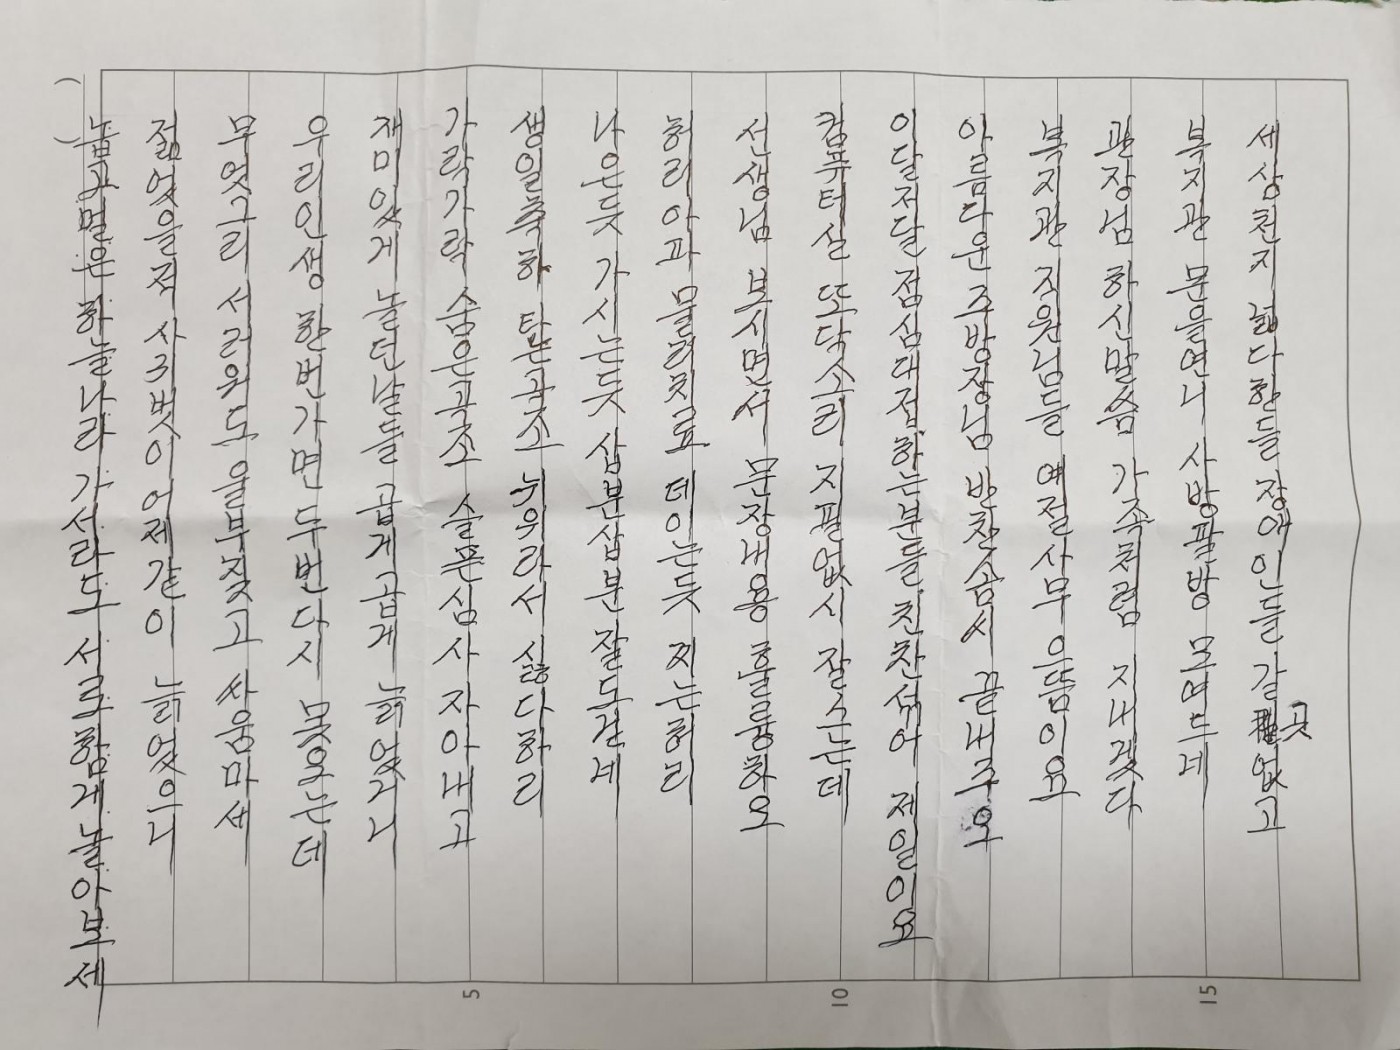 세상천지 넓다한들 장애인들 갈곳없고
복지관 문을연니 사방팔방 모여드네
관장님 하신말씀 가족처럼 지내겠다
복지관 직원님들 예절사무 으뜸이요
아름다운 주방장님 반찬솜씨 끝내주오
이달저달 점심대접하는분들 친찬섞어 제일이요
컴퓨터실 또닥소리 지필없시 잘쓰는데
선생님 보시면서 문장내용 훌륭하오
허리아파 물리치료 데인듯 찌는허리
나은듯 가시는듯 삽분삽분 잘도걷네
생일축하 탄곡조 뉘우라서 싫다하리
가락가락 숨은곡조 슬픈심사 자아내고
재미있게 놀던날들 곱게곱게 늙었거니
우리인생 한번가면 두번다시 못오는데
무엇그리 서러워도 울부짖고 싸움마세
젊었을적 사귀벗이 어제같이 늙었으니
높고멀은 하늘나라 가서라도 서로함게 놀아보세
( )
5
10
15